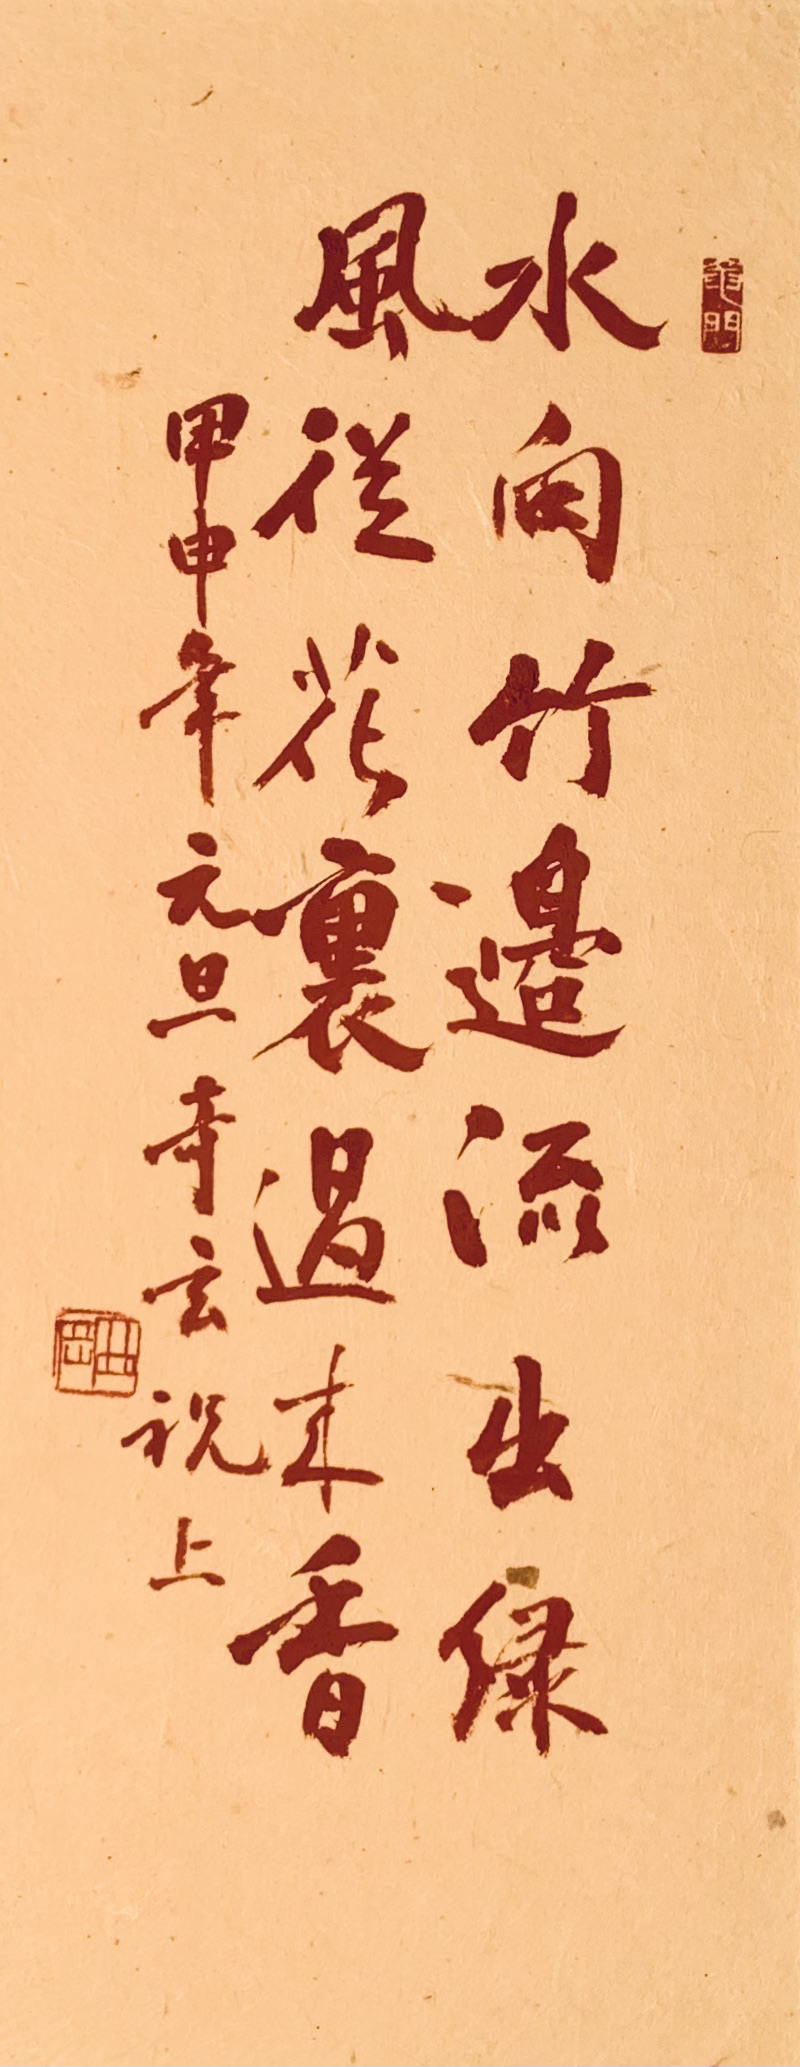 水向竹邊流出綠
風從花裏過来香
甲申年元旦寺玄祝上